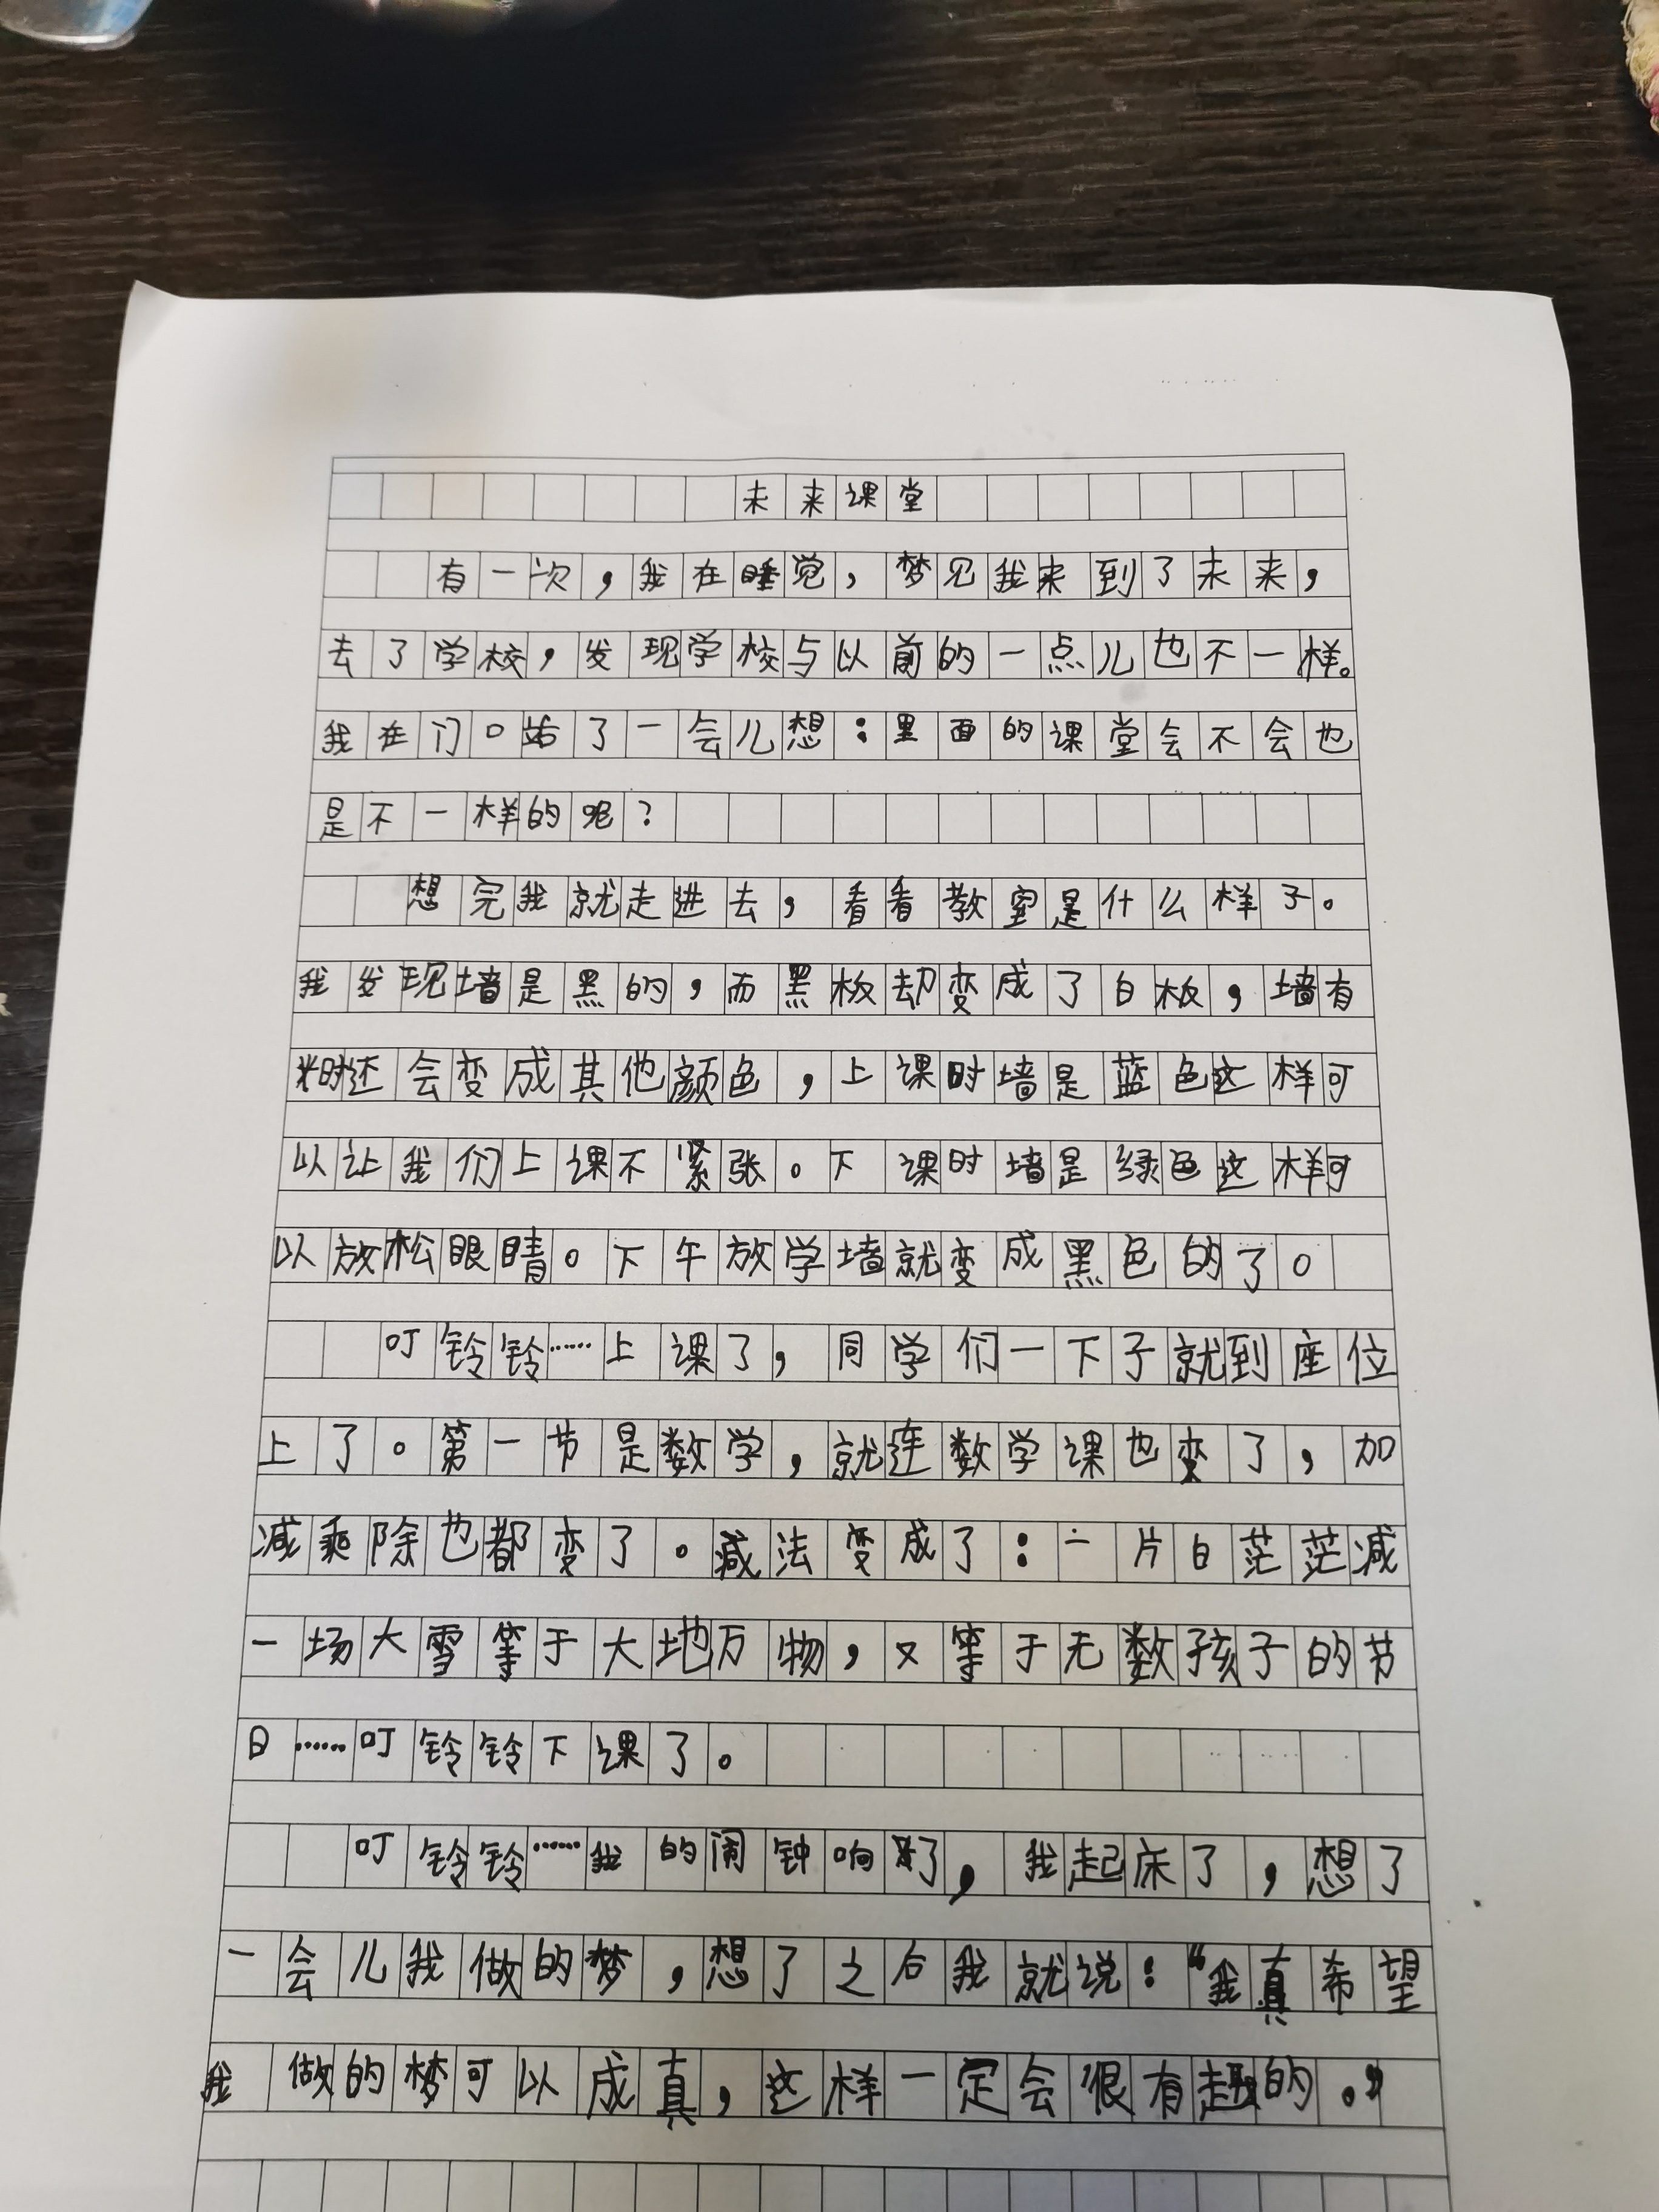 未来课堂
有一次，我在睡觉，梦见我来到了未来，
去了学校，发现学校与以前的一点儿也不一样。
我在门口站了一会儿想：里面的课堂会不会也
是不一样的呢？
想完我就走进去，看看教室是什么样子。
我发现墙是黑的，而黑板却变成了白板，墙有
时还会变成其他颜色，上课时墙是蓝色这样可
以让我们上课不紧张。下课时墙是绿色这样可
以放松眼睛。下午放学墙就变成黑色的了。
叮铃铃……上课了，同学们一下子就到座位
上了。第一节是数学，就连数学课也变了，加
减乘除也都变了。减法变成了：一片白茫茫减
一场大雪等于大地万物，又等于无数孩子的节
日……叮铃铃下课了。
叮铃铃……我的闹钟响了，我起床了，想了
一会儿我做的梦，想了之后我就说：“我真希望
我做的梦可以成真，这样一定会很有趣的。”